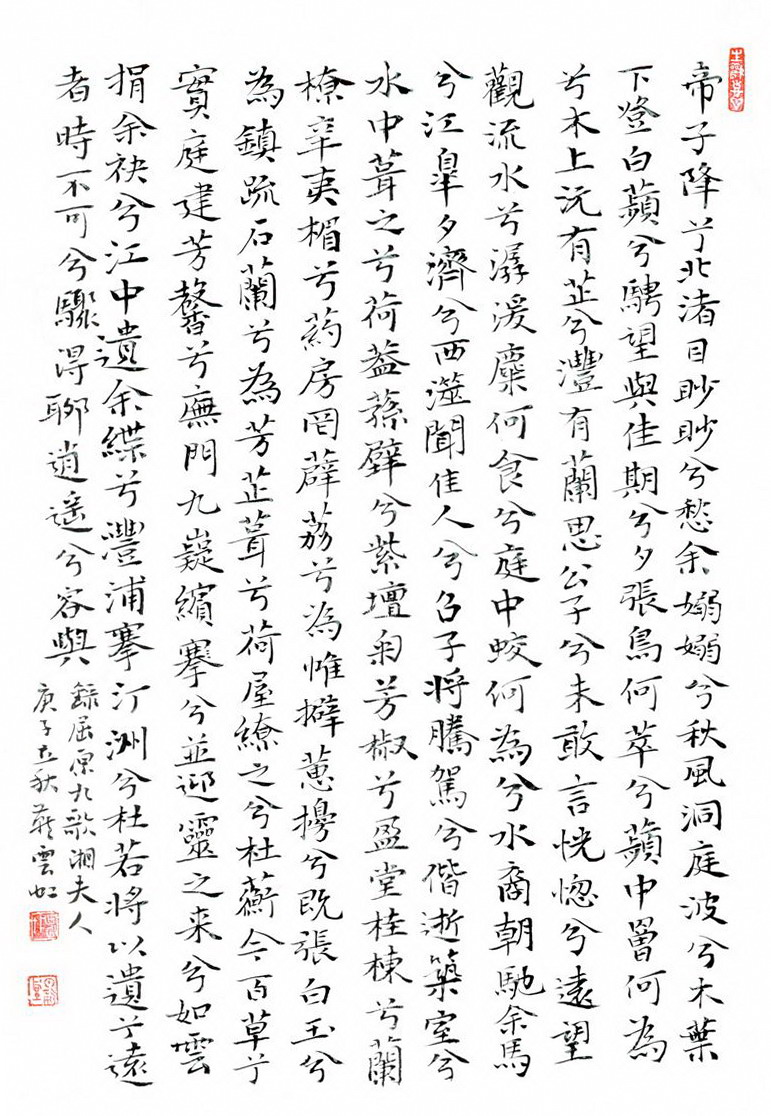 帝子降兮北渚目眇眇兮愁余嫋嫋兮秋風洞庭波兮木葉
下登白蘋兮騁望與佳期兮夕張鳥何萃兮蘋中罾何為
兮木上沅有芷兮灃有蘭思公子兮未敢言恍惚兮遠望
觀流水兮潺湲麋何食兮庭中蛟何為兮水裔朝馳余馬
兮江皋夕濟兮西澨聞佳人兮召子將騰駕兮偕逝築室兮
水中葺之兮荷蓋蓀壁兮紫壇匊芳椒兮盈堂桂棟兮蘭
橑辛夷楣兮葯房罔薜荔兮為帷擗蕙櫋兮既張白玉兮
為鎮疏石蘭兮為芳芷葺兮荷屋繚之兮杜蘅合百草兮
實庭建芳馨兮廡門九嶷繽搴兮並迎靈之来兮如雲
捐余袂兮江中遺余緤兮灃浦搴汀洲兮杜若將以遺兮遠
者時不可兮驟得聊逍遥兮容與
錄屈原九歌湘夫人
庚子立秋蘇雲虹